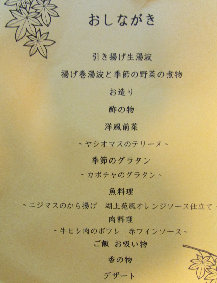 おしながき
引き揚げ生湯波
揚げ巻湯波と季節の野菜の煮物
お造り
酢の物
洋風前菜
~ヤシオマスのテリーヌ~
季節のグラタン
~カボチャのグラタン~
魚料理
~ニジマスのから揚げ 湖上苑風オレンジソース仕立て
肉料理
~牛ヒレ肉のポワレ 赤ワインソース~
ご飯 お吸い物
香の物
デザート